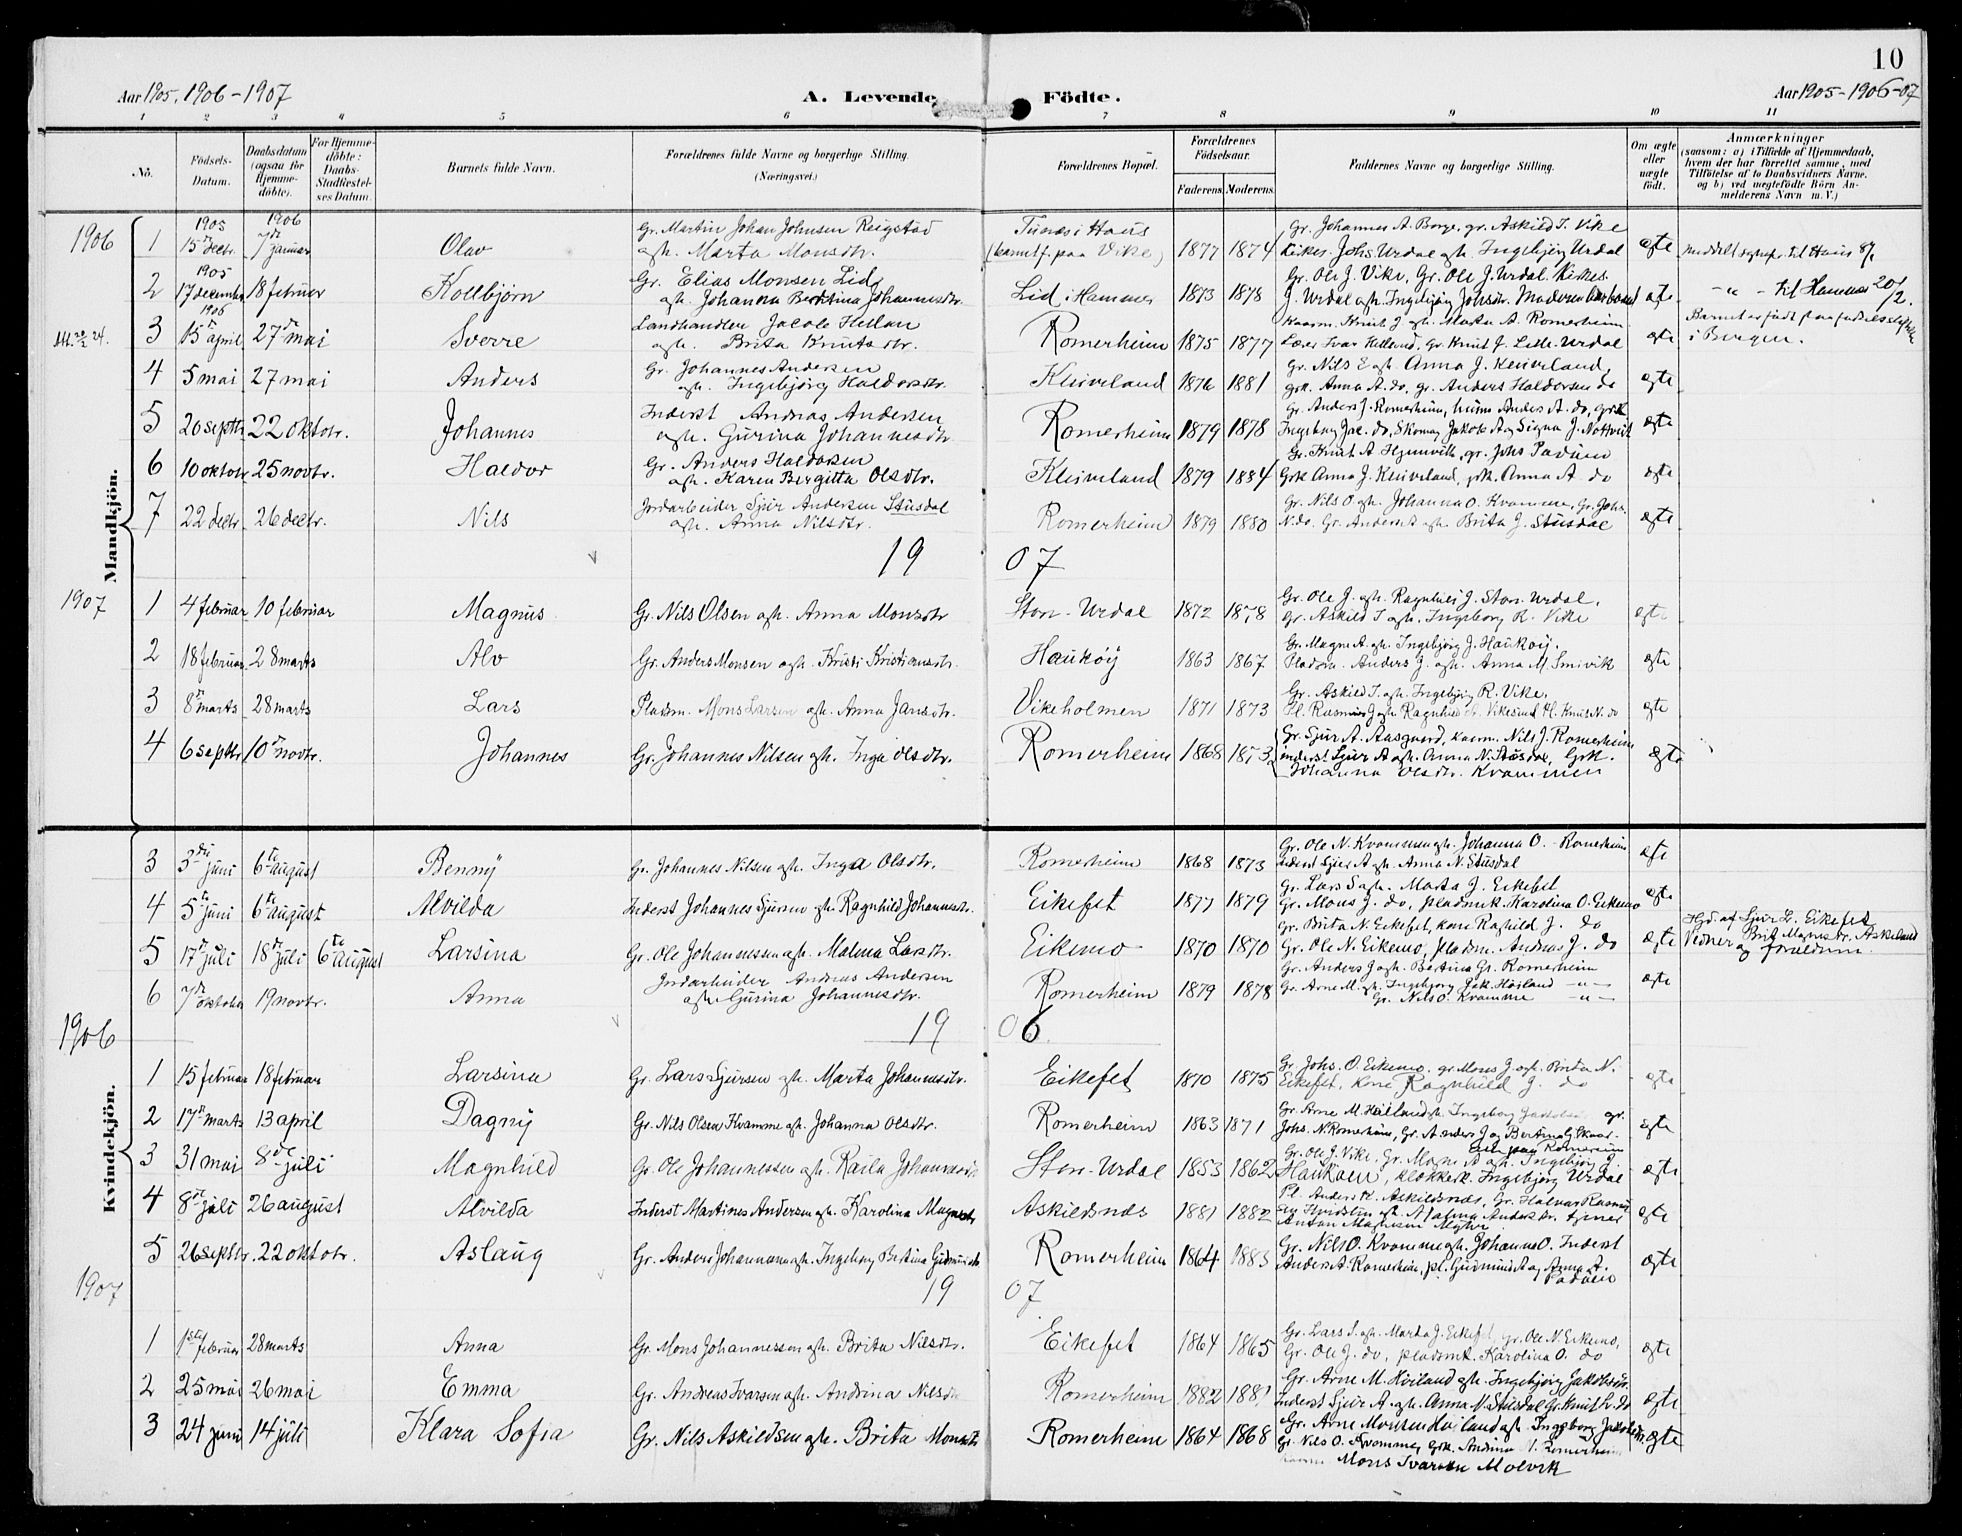 10
Aar 1905, 1906-1907 A. Levende Födte. Aar 1905-1906-07
1 2 3 4 5 6 7 8 9 10 11
No. Födsels-Datum. Daabsdatum (ogsaa for Hjemme-döbte). For Hjemme-döbte: Daabs-Stadfæstel-ses Datum. Barnets fulde Navn. Forældrenes fulde Navne og borgerlige Stilling. (Næringsvei.) Forældrenes Bopæl. Forældrenes Födselsaar. Faderens. Moderens. Faddernes Navne og borgerlige Stilling. Om ægte eller uægte födt. Anmærkninger (saasom: a) i Tilfælde af Hjemmedaab, hvem der har forrettet samme, med Tilföielse af to Daabsvidners Navne. og b) ved uegtefödte Börn An-melderens Navn m. V.)
Mandkjön.
1906
1 1905 15de decbr. 1906 7de januar Olav Gr. Martin Johan Johnsen Reigstad
ogh. Marta Monsdtr. 1877 1874 Gr. Johannes A. Borge, gr. Askild I. Vike
Kirkes. Johs. Urdal ogh. Ingebjörg Urdal egte
2 1905 17 december 18 februar Kollbjörn Gr. Elias Monsen Lid
ogh. Johanna Berntina Johannesdtr. Lid i Hammer 1873 1878 Gr. Ole J. Vike, Gr. Ole J. Urdal, Kirkes.
J. Urdal ogh. Ingebjörg Johsdtr. egte -"- til Hammer 20/2.
3 1906 15de april 27de mai Sverre Landhandler Jacob Helland
ogh. Brita Knutsdtr. Romerheim 1875 1877 Knut J. ogh. Marta A. Romerheim
Lærer Ivar Helland, gr. Knut J. Litle-Urdal egte i Bergen.
4 5 mai 27 mai Anders Gr. Johannes Andersen
ogh. Ingebjörg Haldorsdtr. Kleiveland 1876 1881 Gr. Nils E ogh. Anna J. Kleiveland,
grk. Anna A. do, gr. Anders Haldorsen do egte
5 20 septbr. 22 oktobr. Johannes Inderst Andreas Andersen
ogh. Gurina Johannesdtr. Romerheim 1879 1878 Gr. Anders J. Romerheim, Anders A. do, grk.
Ingeborg Jac. do, Skomag. Jakob A og Signa J. egte
6 10 oktobr 25 novbr. Haldor Gr. Anders Haldorsen
ogh. Karen Bergitta Olsdtr. Kleiveland 1879 1884 Gr. Knut A
Grk. Anna J. Kleiveland, grk. Anna A. do egte
7 22 decbr. 26 decbr. Nils Jordarbeider Sjur Andersen Stusdal
ogh. Anna Nilsdtr. Romerheim 1879 1880 Gr. Nils O. ogh. Johanna O. Kvamme, Gr. Johs.
N. do. Gr. Anders A ogh. Brita J. Stusdal egte
19 07
1907
1 4 februar 10 februar Magnus Gr. Nils Olsen ogh. Anna Monsdtr Stor-Urdal 1872 1878 Gr. Ole J. ogh. Ragnhild J. Stor-Urdal,
Gr. Askild I ogh. Ingeborg R. Vike egte
2 18 februar 28 marts Alv Gr. Anders Monsen ogh. Kristi Kristiansdtr. Hauköy 1863 1867 Gr. Magne A ogh. Ingebjörg J. Hauköy,
Pladsm. Anders J. ogh. Anna M. Smivik egte
3 8de marts 28 marts Lars Pladsm. Mons Larsen ogh. Anna Jansdtr. Vikeholmen 1871 1873 Gr. Askild I. ogh. Ingebjörg R. Vike,
Pl. Rasmus J ogh. Ragnhild Vikesund Pl. Knut N. do egte
4 6 septbr. 10de novbr. Johannes Gr. Johannes Nilsen ogh. Inga Olsdtr. Romerheim 1868 1873 Gr. Sjur A. Aasgaard, Nils J. Romerheim
inderst Sjur A ogh. Anna N. Stusdal, Grk.
Johanna Olsdtr. Kvammen egte
Kvindekjön.
3 3die juni 6te august Benny Gr. Johannes Nilsen ogh. Inga Olsdtr. Romerheim 1868 1873 Gr. Ole N. Kvammen ogh. Johanna O. Romerheim
inderst Sjur A ogh. Anna N. Stusdal egte
4 5te juni 6te august Alvilda Inderst Johannes Sjursen ogh. Ragnhild Johannesdtr. Eikefet 1877 1879 Gr. Lars S ogh. Marta J. Eikefet
Gr. Mons J. do, pladsmk. Karolina O. Eikemo egte
5 17de juli 18de juli 6te august Larsina Gr. Ole Johannessen ogh. Malena Larsdtr. Eikemo 1870 1870 Gr. Brita N. Eikefet, kone Raghild J. do
Gr. Ole N. Eikemo, pladsm. Andreas J. do egte Hjd. af Sjur L. Eikefet
Brita Magnusdtr. Askeland
6 7de oktober 19 novbr. Anna Jordarbeider Andreas Andersen
ogh. Gurina Johannesdtr. Romerheim 1879 1878 Gr. Anders J ogh. Bertina Gr. Romerheim
Gr. Arne M. ogh. Ingebjörg Jak. Höiland -"-
Gr. Nils O. Kvamme -"- egte
1906 19 06
1 15 februar 18 februar Larsina Gr. Lars Sjursen ogh. Marta Johannesdtr. Eikefet 1870 1875 Gr. Johs. O. Eikemo, gr. Mons J. ogh. Brita N.
Eikefet, kone Ragnhild J. do egte
2 17de marts 13 april Dagny Gr. Nils Olsen Kvamme ogh. Johanna Olsdtr. Romerheim 1863 1871 Gr. Arne M. Höiland ogh. Ingeborg gr.
Johs. N. Romerheim, Gr. Anders J og Bertina G. egte
3 31 mai 8de juli Magnhild Gr. Ole Johannessen ogh. Raila Johannesdtr. Stor-Urdal 1853 1862 Gr. Ole J. Vike, Gr. Magne A ogh. Ingebjörg J.
Hauköen, klokkerk. Ingebjörg Urdal egte
4 8de juli 26 august Alvilda Inderst Martines Andersen ogh. Karolina Magnesdtr Askildsnes 1881 1882 Pl. Anders K. Askildsnes, Gr. Halvar Rasmus-
Andersdtr. tjener
Anton Magnesen Myhr egte
5 26 septbr. 22 oktobr. Aslaug Gr. Anders Johannesen ogh. Ingeborg Bertina Gudmundsdtr Romerheim 1864 1883 Gr. Nils O. Kvamme ogh. Johanna O. Inderst
Anders A. Romerheim, pl. Gudmund A og Anna A. egte
1907 19 07
1 1ste februar 28 marts Anna Gr. Mons Johannessen ogh. Brita Nilsdtr. Eikefet 1864 1865 Gr. Lars S. ogh. Marta J. Eikefet, gr. Ole N. Eikemo,
Gr. Ole J. do, pladsmk. Karolina O. do egte
2 25 mai 26 mai Emma Gr. Andreas Ivarsen ogh. Andrina Nilsdtr Romerheim 1882 1881 Gr. Arne M. Höiland ogh. Ingebjörg Jakobsdtr.
Inderst Sjur A. ogh. Anna N. Stusdal Gr. Knut do egte
3 24 juni 14 juli Klara Sofia Gr. Nils Askildsen ogh. Brita Monsdtr Romerheim 1864 1868 Gr. Arne Monsen Höiland ogh. Ingeborg Jakobsdtr.
Gr. Nils O. Kvamme, Grk. Andrina N. Romerheim
Mons Ivarsen Molvik egte